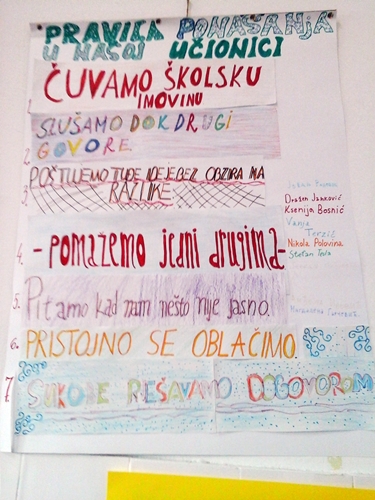 PRAVILA PONAŠANJA
U NAŠOJ UČIONICI
1. ČUVAMO ŠKOLSKU
IMOVINU
SLUŠAMO DOK DRUGI
2. GOVORE.
3. POŠTUJEMO TUĐE IDEJE BEZ OBZIRA NA
RAZLIKE
4. -POMAŽEMO JEDNI DRUGIMA-
5. Pitamo kad nam nešto nije jasno.
6. PRISTOJNO SE OBLAČIMO.
7 SUKOBE RJEŠAVAMO DOGOVOROM
Dražen Janković
Ksenija Bosnić
Vanja
Terzić
Nikola Polovina
Stefan